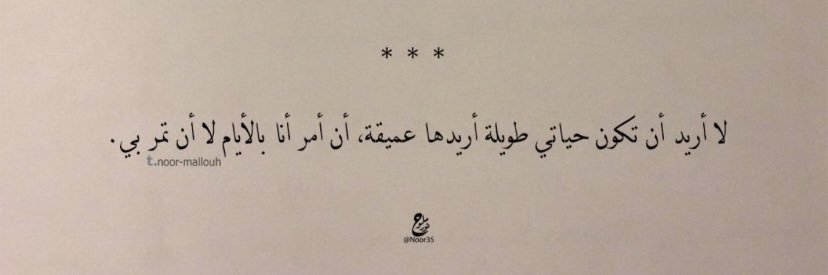 * * *
لا أريد أن تكون حياتي طويلة أريدها عميقة، أن أمر أنا بالأيام لا أن تمر بي.
t.noor-mallouh
@Noor35